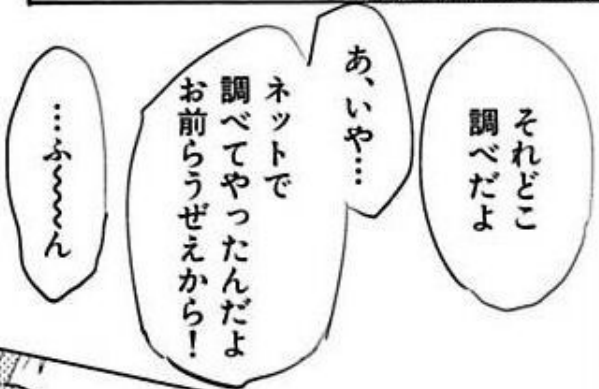 それどこ
調べだよ
あ、いや…
ネットで
調べてやったんだよ
お前らうぜえから!
…ふ〜〜〜ん